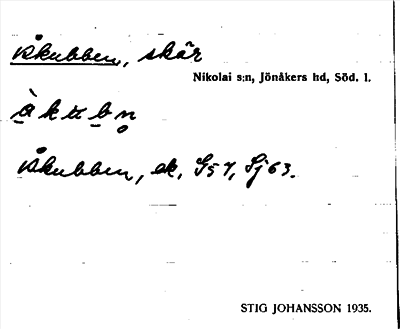 Åkubben, skär
Nikolai s:n, Jönåkers hd, Söd. l.
Åkubben, ek,
STIG JOHANSSON 1935.